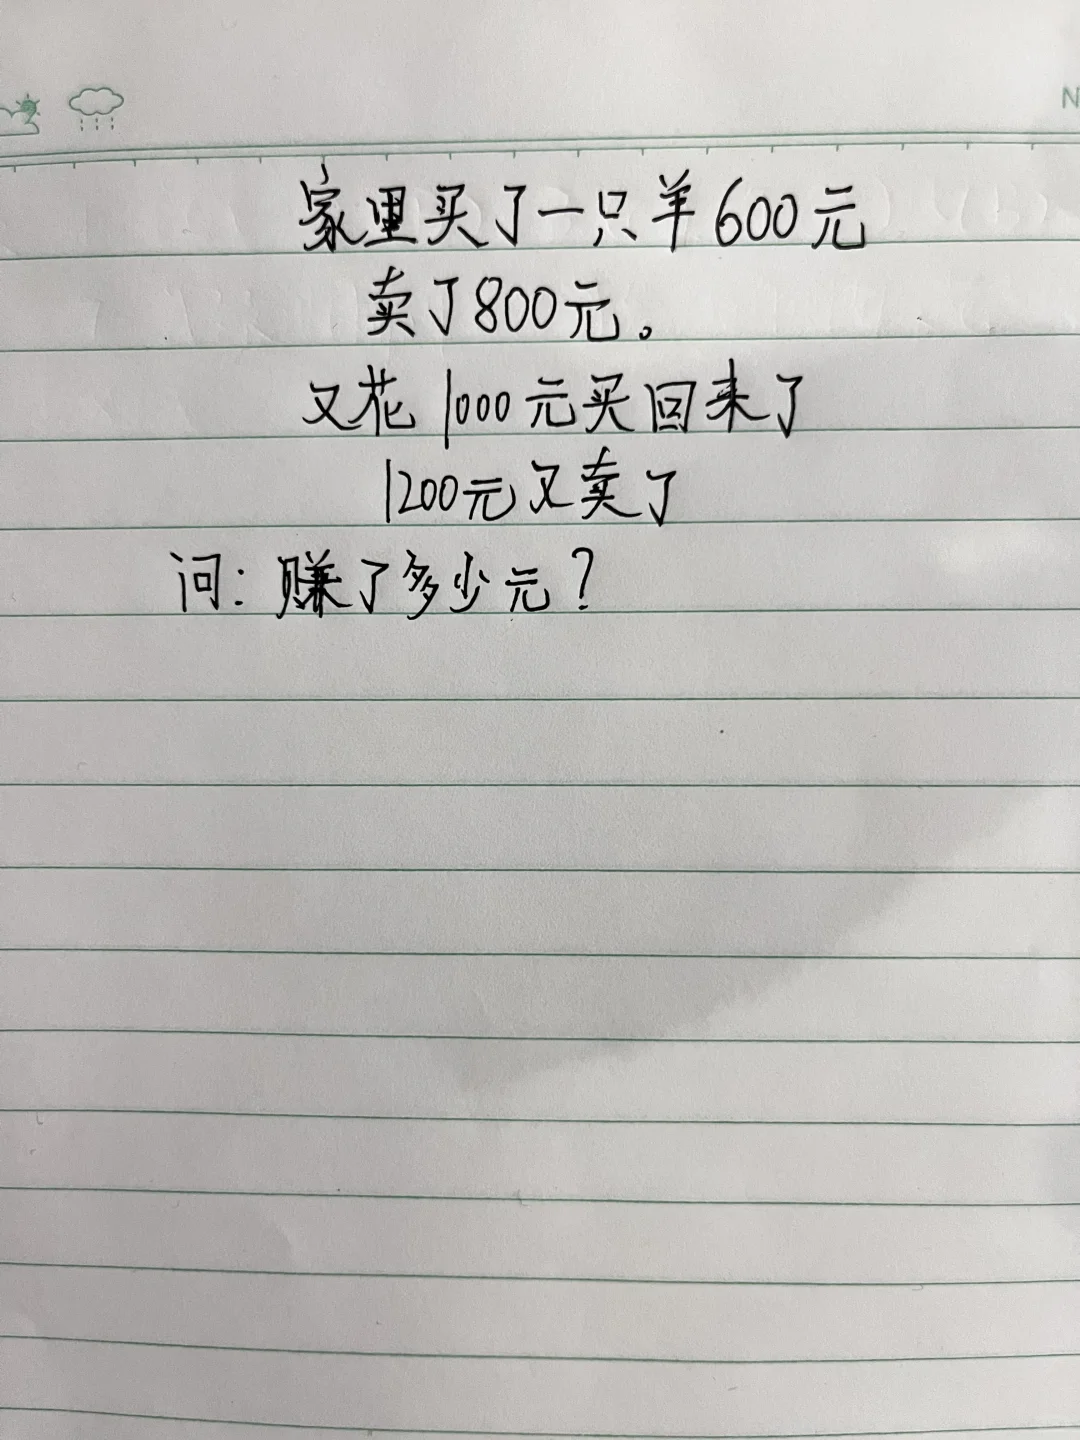 N
家里买了一只羊600元
卖了800元。
又花1000元买回来了
1200元又卖了
问：赚了多少元？